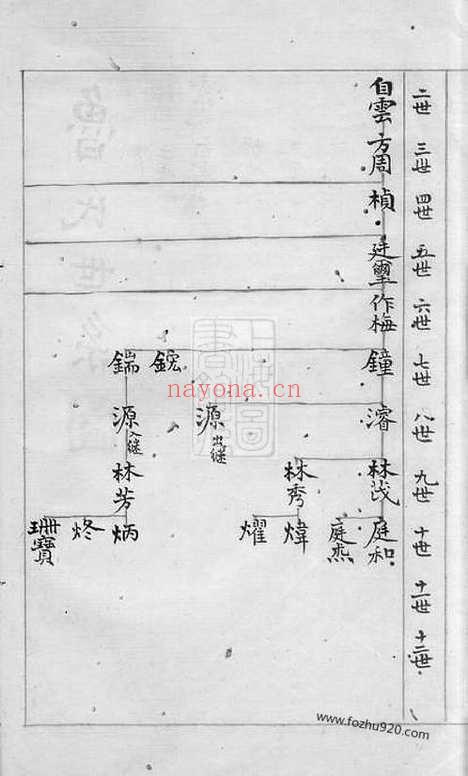 二世 三世 四世 五世 六世 七世 八世 九世 十世 十一世 十二世
白雲 方周 楨 廷璽 作梅 鐘 濬 林茂 庭和
庭杰
林秀 煒
燿
源 出継
鋐
鍴 源 入継 林芳 炳
炵
珊寶
nayona.cn
www.fozhu920.com